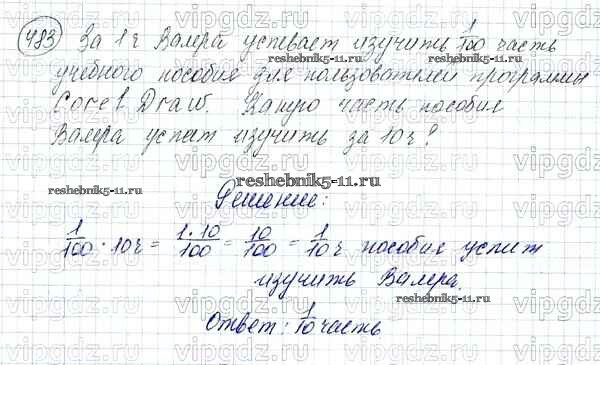 483 За 1ч Валера успевает изучить 1/100 часть
учебного пособия для пользователей программы
Corel Draw. Какую часть пособия
Валера успеет изучить за 10ч?
reshebnik5-11.ru
reshebnik5-11.ru
reshebnik5-11.ru
reshebnik5-11.ru
reshebnik5-11.ru
Решение:
1/100 · 10ч = 1·10/100 = 10/100 = 1/10 ч пособия успит
изучить Валера.
reshebnik5-11.ru
Ответ: 1/10 часть
vipgdz.ru